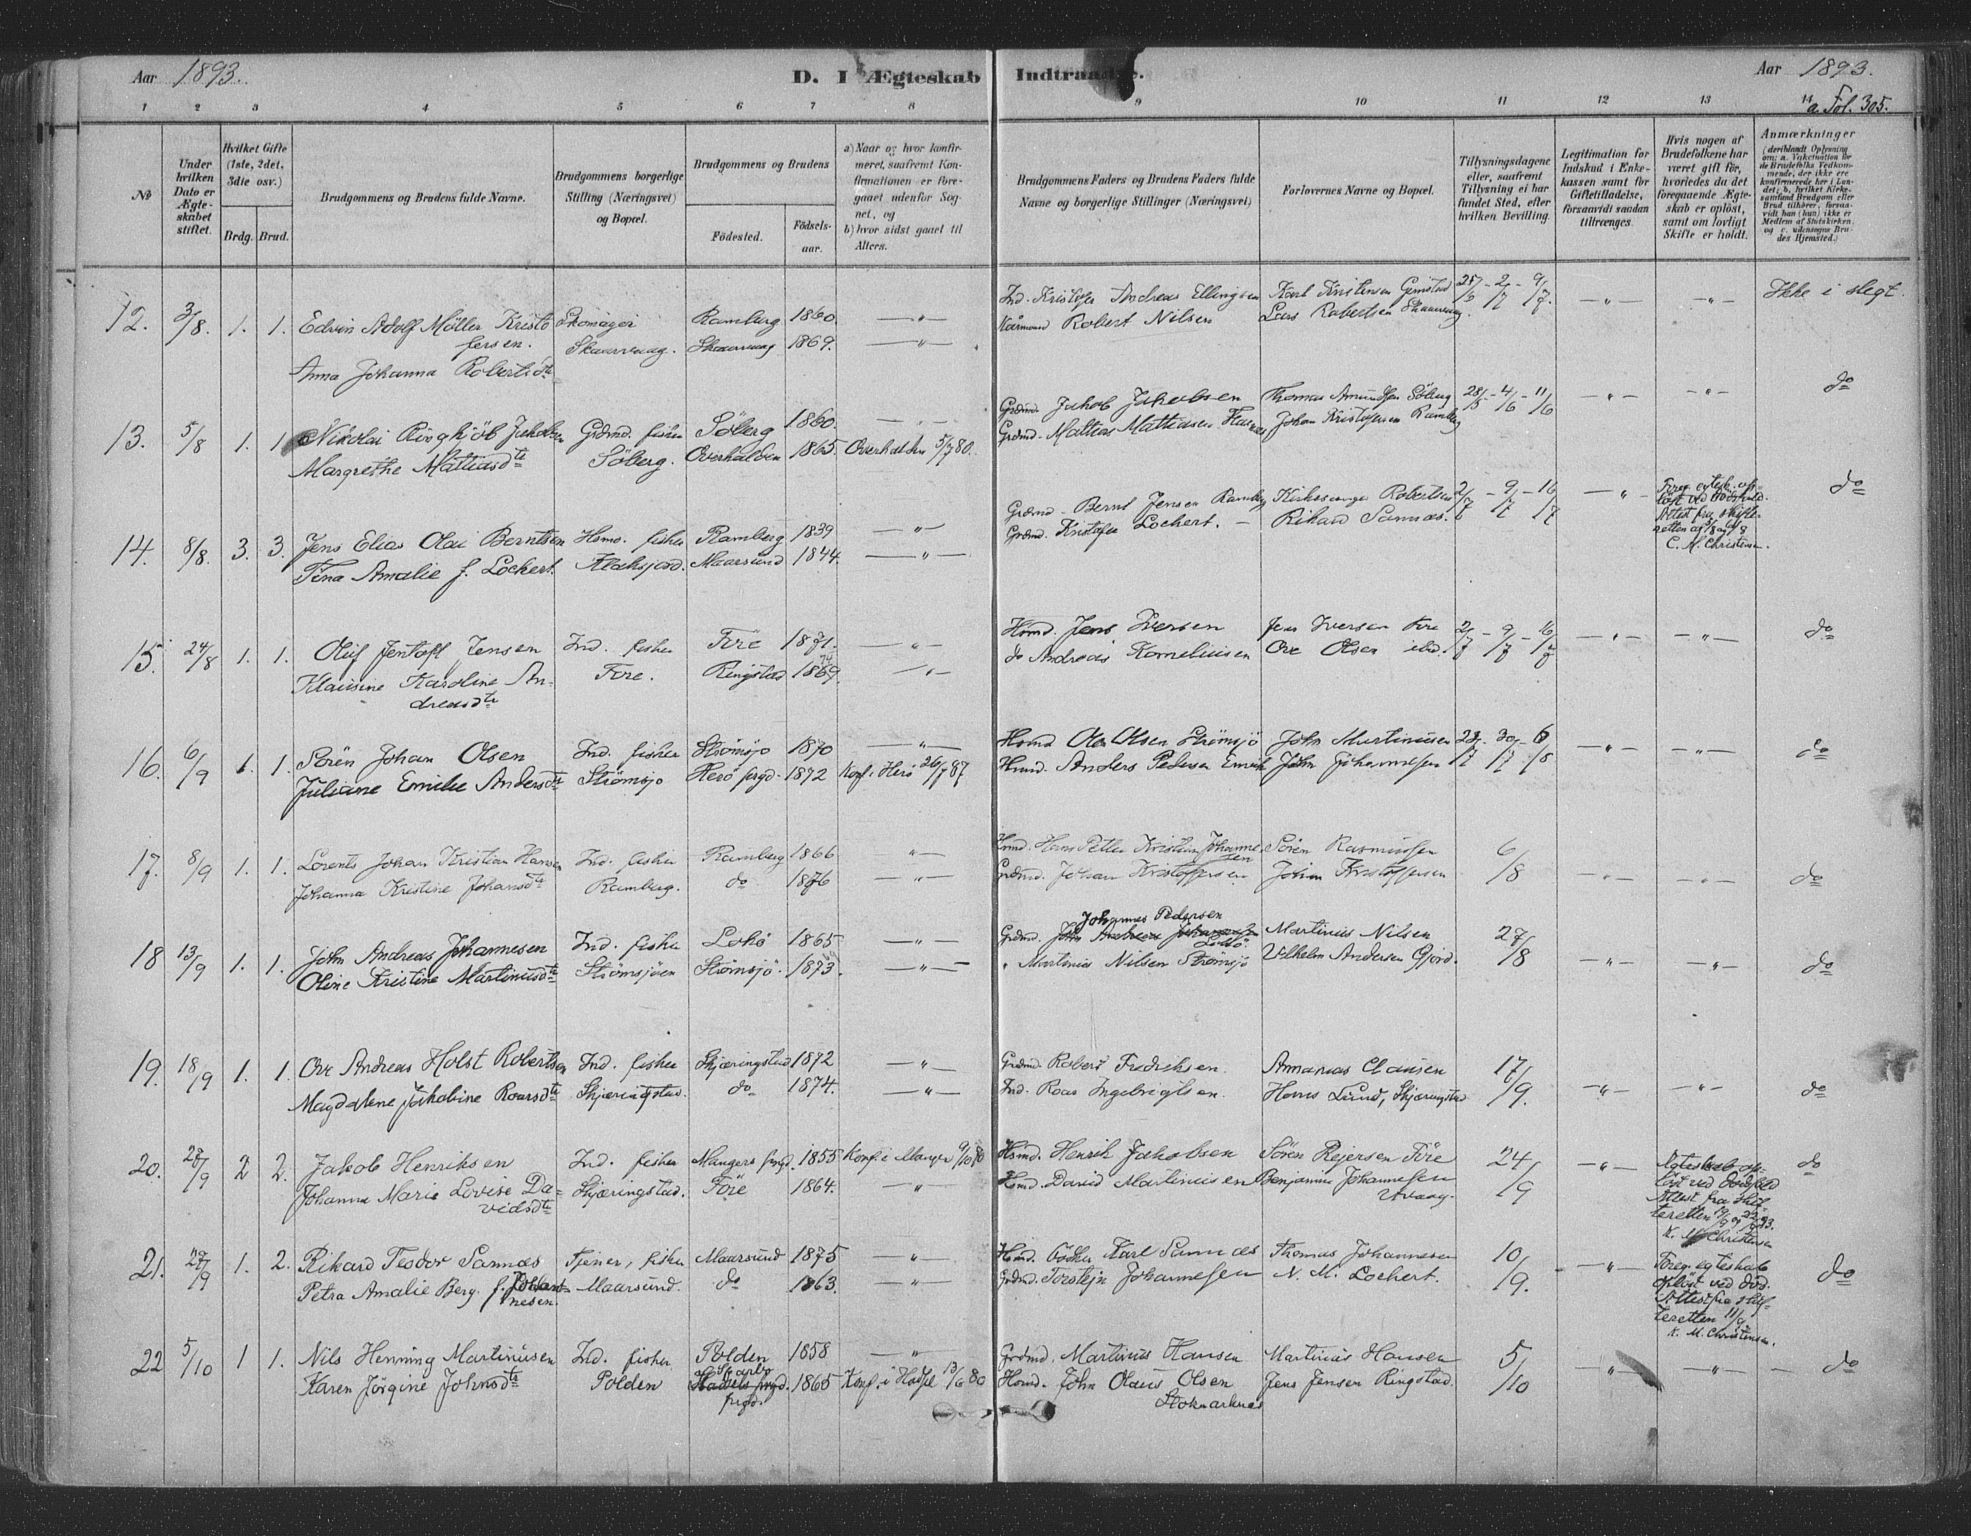 Aar 1893. D. I Ægteskab Indtraadte. Aar 1893.
a. Fol. 305.
1 2 3 4 5 6 7 8 9 10 11 12 13 14
No
Under hvilken Dato er Ægteskabet stiftet.
Hvilket Gifte (1ste, 2det, 3die osv.)
Brdg. Brud.
Brudgommens og Brudens fulde Navne.
Brudgommens borgerlige Stilling (Næringsvei) og Bopæl.
Brudgommens og Brudens
Fødested. Fødselsaar.
a) Naar og hvor konfirmeret, saafremt Konfirmationen er foregaaet udenfor Sognet, og
b) hvor sidst gaaet til Alters.
Brudgommens Faders og Brudens Faders fulde Navne og borgerlige Stillinger (Næringsvei)
Forlovernes Navne og Bopæl.
Tillysningsdagene eller, saafremt Tillysning ei har fundet Sted, efter hvilken Bevilling.
Legitimation for Indskud i Enkekassen samt for Giftetilladelse, forsaavidt saadan tiltrænges.
Hvis nogen af Brudefolkene har været gift før, hvorledes da det foregaaende Ægteskab er opløst, samt om lovligt Skifte er holdt.
Anmærkninger
12. 3/8. 1. 1. Edvin Adolf Möller Kristofersen. Skomager Ramberg 1860. — " — Ind. Kristofer Andreas Ellingsen Karl Kristensen 25/6 - 2/7 - 9/7. — " — — " — Ikke i slegt.
Anna Johanna Robertsdtr Skaarvaag. Skaarvaag 1869. — " — Robert Nilsen Lars Robertsen Skaarvaag.
13. 5/8 1. 1. Nikolai Jakobsen Grdmd. fisher Söberg 1860. — " — Grdmd. Jakob Jakobsen Thomas Amundsen Söberg 28/5 - 4/6 - 11/6 — " — — " — do
Margrethe Mattiasdtr Söberg. Overhalden 1865. Overhalden 5/7 80. Grdmd. Mattias Mattiasen Johan Kristofersen Ramberg
14. 8/8. 3. 3. Jens Elias Olai Berntsen Hsmd. fisher Ramberg 1839 — " — Grdmd. Bernt Jensen Ramberg Kirkesanger Robertsen 2/7 - 9/7 - 16/7 — " — do
Tina Amalie f. Lochert. Maarsund 1844. — " — Grdmd. Kristofer Lochert. — Rikard Sannæs.
C. M. Christensen.
15. 24/8 1. 1. Oluf Jentoft Jensen Ind. fisher Före 1871. — " — Hsmd. Jens Iversen Jens Iversen Före 2/7 - 9/7 - 16/7 — " — — " — do
Klausine Karoline Andreasdtr Före. Ringstad 1869. — " — do Andreas Korneliusen Ove Olsen ibd.
16. 6/9 1. 1. Sören Johan Olsen Ind. fisher Strömsjo 1870 — " — Hsmd Ole Olsen Strömsjö John Martinusen 23/7 - 30/7 - 6/8 — " — — " — do
Juliane Emilie Andersdtr Strömsjo Herö prgd. 1872 Konf. i Herö 26/7 87 Hsmd. Anders Pedersen John Johannesen
17. 8/9 1. 1. Lorents Johan Kristian Hansen Ind. fisher Ramberg 1866 — " — Hsmd. Hans Petter Kristian Johannesen Sören Rasmussen 6/8 — " — — " — do
Johanna Kristine Johansdtr Ramberg. do 1876 — " — Grdmd. Johan Kristoffersen Johan Kristoffersen
18 13/9 1. 1. John Andreas Johannesen Ind. fisher 1865 — " — Grdmd. Johannes Pedersen Martinus Nilsen 27/8 — " — — " — do
Oline Kristine Martinusdtr Strömsjöen Strömsjö. 1873. — " — " Martinus Nilsen Strömsjö Vilhelm Andersen Gjord.
19. 18/9 1. 1. Ove Andreas Holst Robertsen Ind. fisher Skjæringstad 1872 — " — Grdmd Robert Fredriksen. Amanias Clausen 17/9. — " — — " — do
Magdalene Jakobine Roarsdtr Skjæringstad. do 1874. — " — Ind. Roar Ingebrigtsen. Hans Lund, Skjæringstad
20. 27/9 2 2. Jakob Henriksen Ind. fisher Mangers prgd. 1855 Konf. i Manger 9/10 70 Hsmd. Henrik Jakobsen Sören Rejersen Före 24/9 — " — do
Johanna Marie Lovise Davidsdtr Skjæringstad. Före 1864. — " — Hsmd. David Martinusen Benjamin Johannesen Uvaag.
Ægteskab opløst ved Dødsfald Attest fra skifteretten
K. M. Christensen
21. 27/9 1. 2. Rikard Teodor Sannæs Tjener, fisher Maarsund 1875 — " — Hsmd. Karl Sannæs Thomas Johannesen 10/9. — " — do
Petra Amalie Berg f. Johannesen. Maarsund. do 1863. — " — Grdmd. Torstejn Johannesen N. M. Lochert.
Foreg. egteskab opløst ved död. Attest fra skifteretten 11/9
K. M. Christensen.
22 5/10 1 1. Nils Henning Martinusen Ind. fisher Polden 1858 — " — Grdmd. Martinus Hansen Martinus Hansen 5/10 — " — — " — do
Karen Jörgine Johnsdtr Polden 1865 Konf. i Hadsel 13/6 80 Hsmd. John Olaus Olsen Stokmarknes Jens Jensen Ringstad.